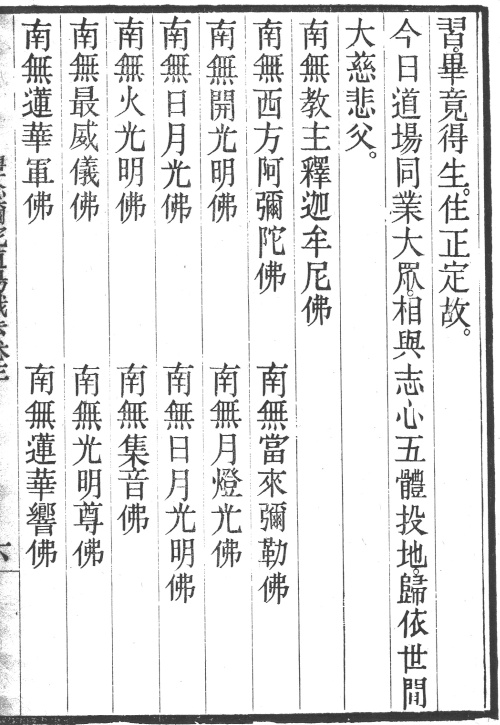 習。畢竟得生。住正定故。
今日道場同業大眾。相與志心五體投地。歸依世間
大慈悲父。
南無教主釋迦牟尼佛
南無西方阿彌陀佛 南無當來彌勒佛
南無開光明佛 南無月燈光佛
南無日月光佛 南無日月光明佛
南無火光明佛 南無集音佛
南無最威儀佛 南無光明尊佛
南無蓮華軍佛 南無蓮華響佛